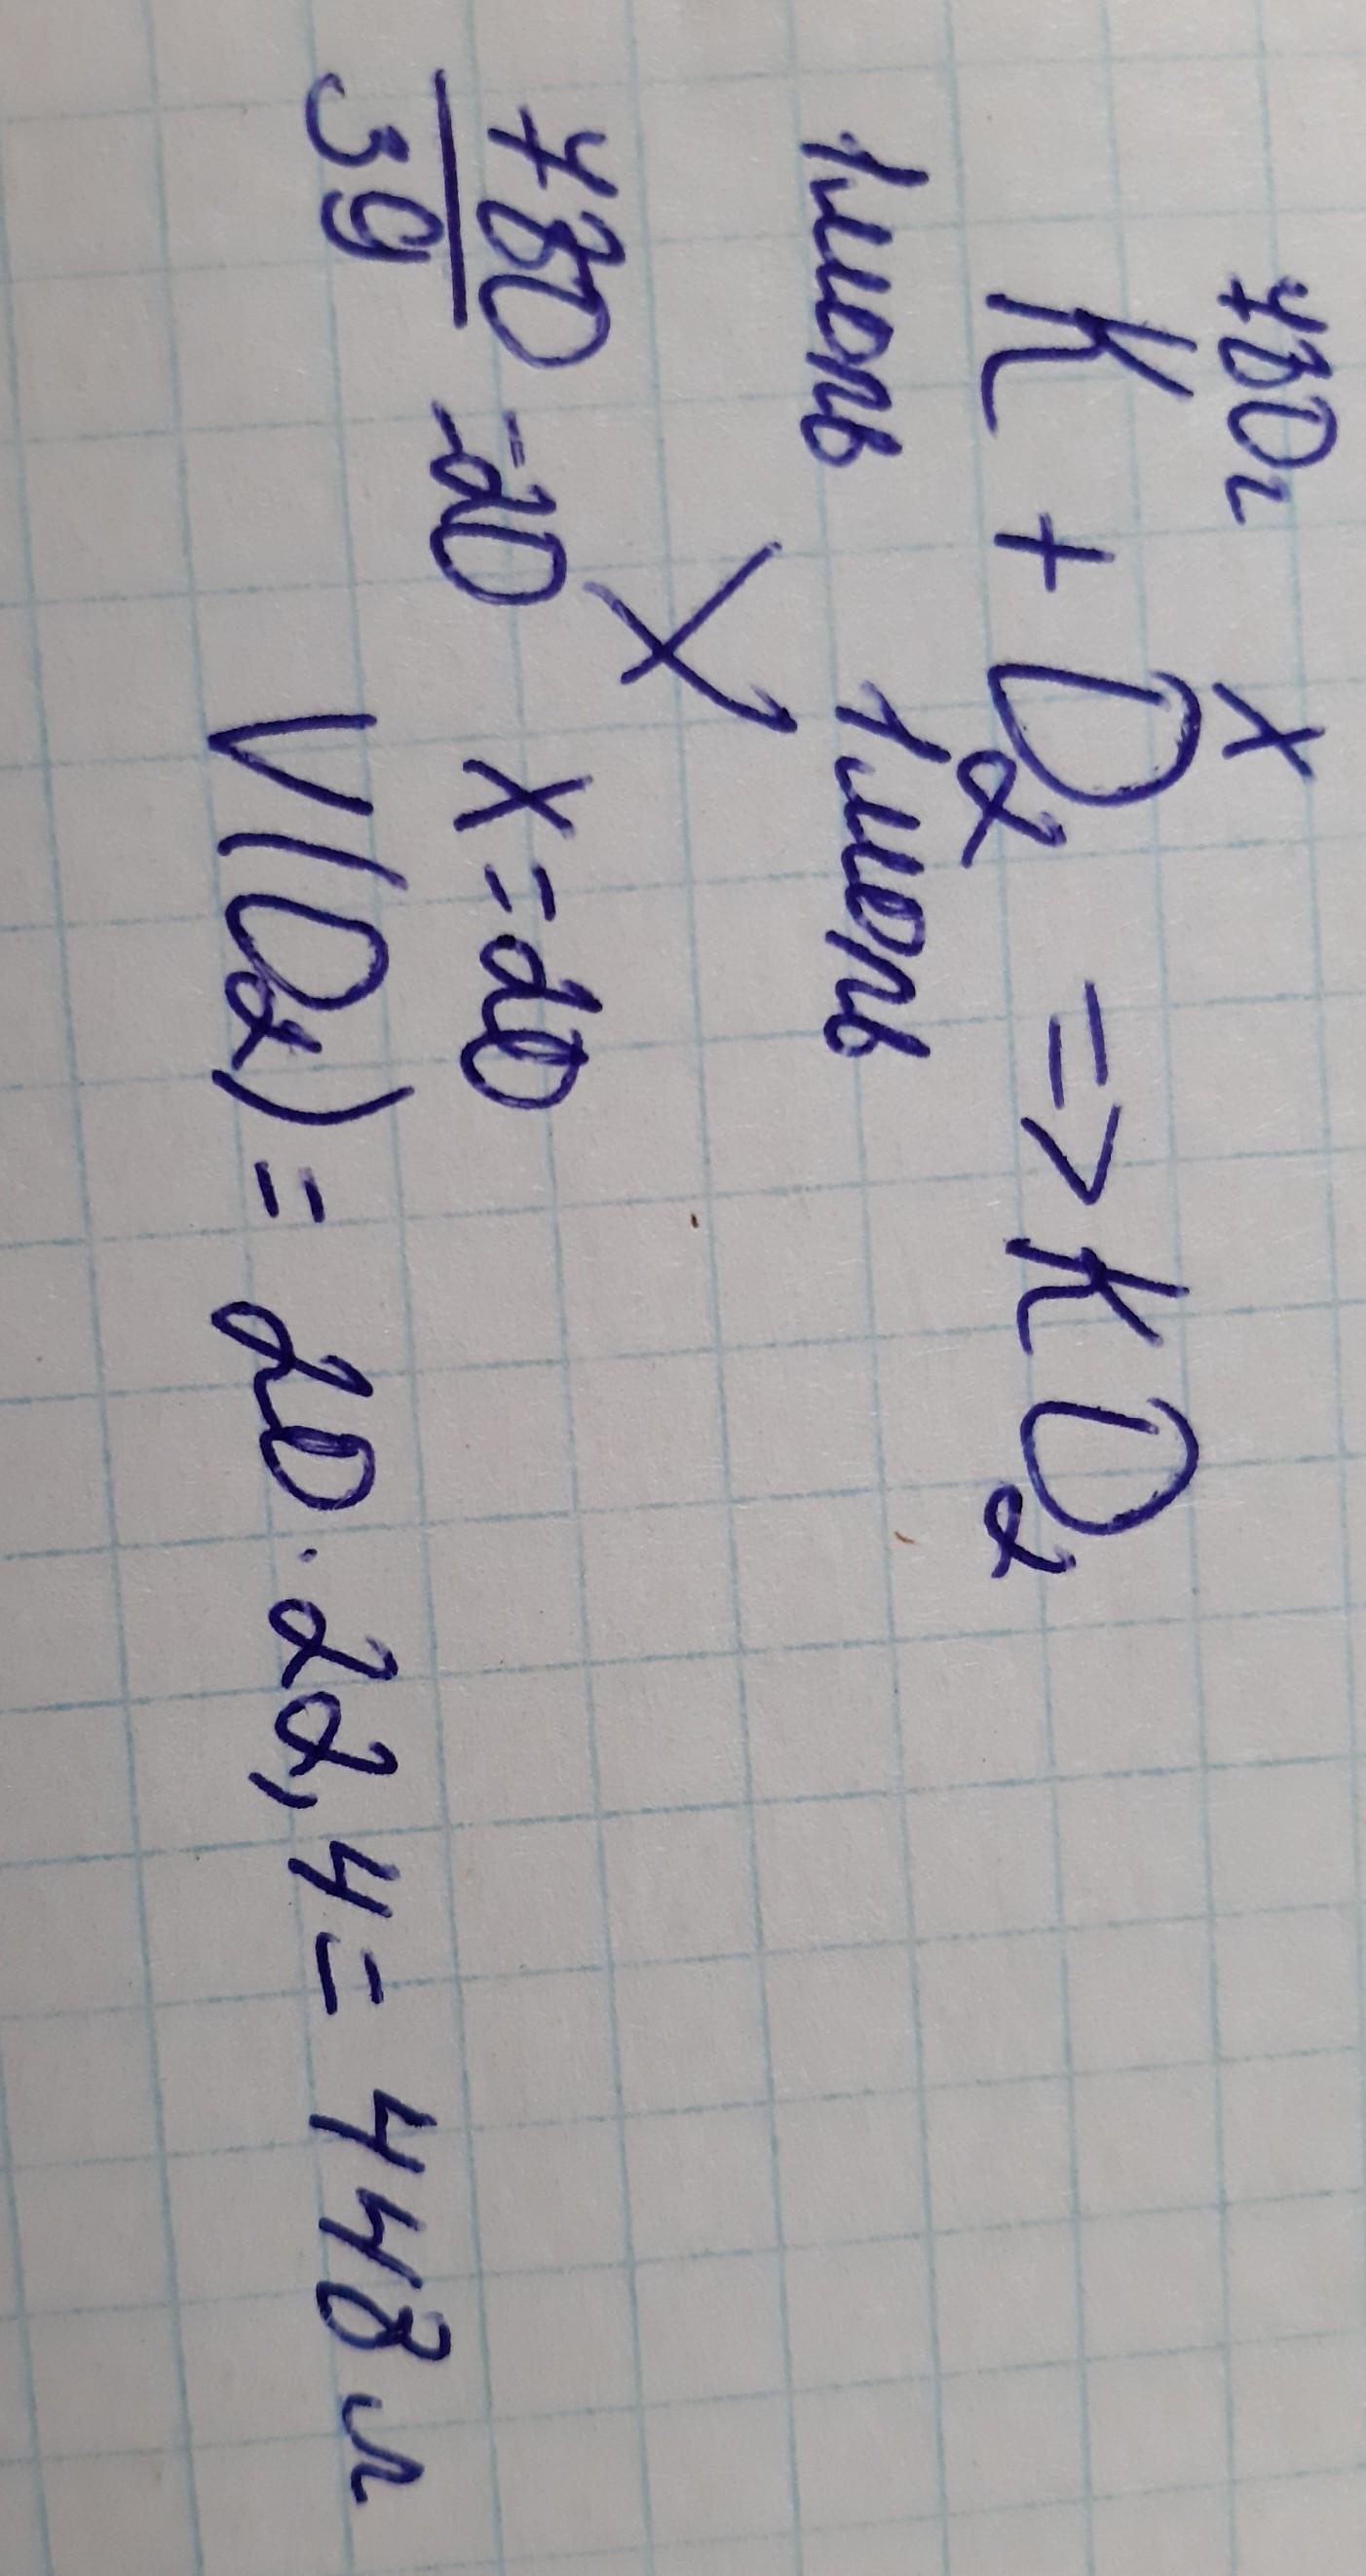 780г x
K + O₂ => KO₂
1моль 1моль
X
780/39 = 20 x = 20
V(O₂) = 20 · 22,4 = 448 л